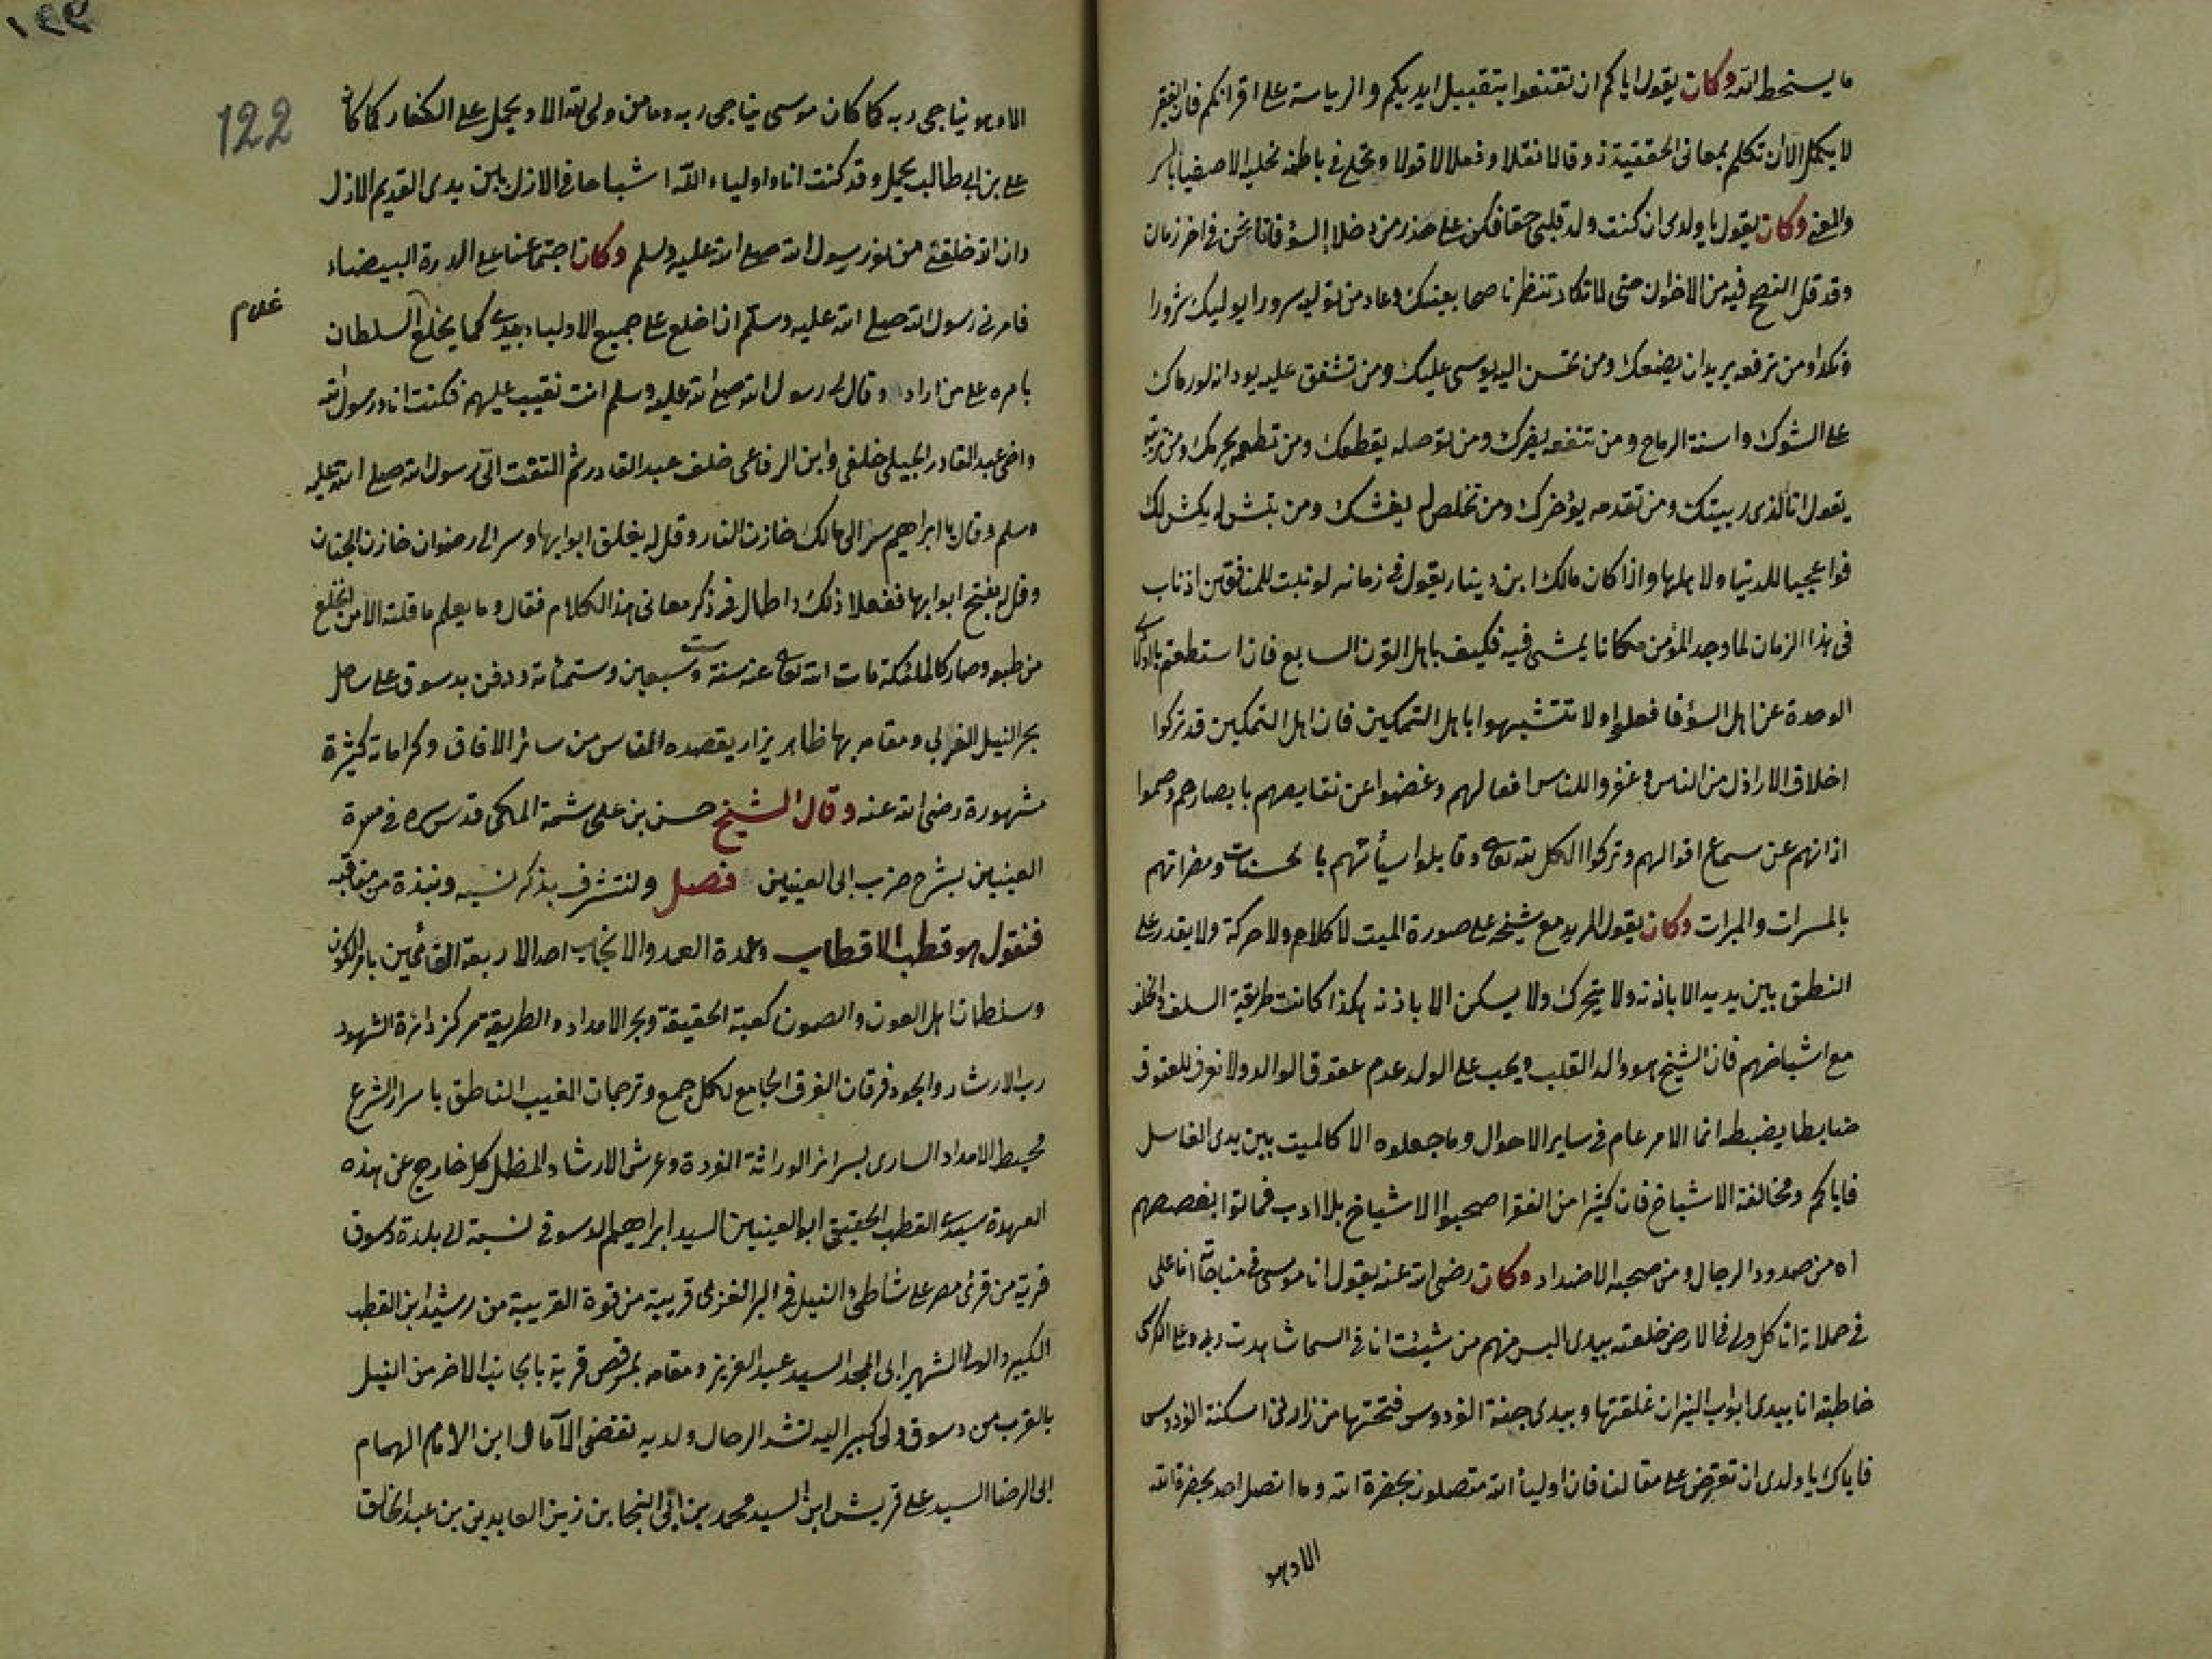 ما يسخط الله وكان يقول اياكم ان تقنعوا بتقبيل ايديكم والرياسة على اقرانكم فان الفقير
لا يكمل الا ان تكلم بمعانى الحقيقة ذوقا لا نقلا وفعلا لا قولا وتخلع فى باطنه تحلية الاصفيا بالسر
والمعنى وكان يقول يا ولدى ان كنت ولد قلبى حقا فكن على حذر من دخلاء السؤ فاننا نحن فى اخر زمان
وقد قل النصح فيه من الاخوان حتى لا تكاد تنظر ناصحا بعينك وعاد من توليه سرورا يوليك شرورا
ونكدا ومن ترفعه يريد ان يضعك ومن تحسن اليه يوسى عليك ومن تشفق عليه يود انه لو رماك
على الشوك واسنة الرماح ومن تنفعه يضرك ومن توصله يقطعك ومن تطعمه يحرمك ومن تربيه
يقول انا الذى ربيتك ومن تقدمه يؤخرك ومن تخلص له يغشك ومن تبش له يكش لك
فواعجبا للدنيا ولاهلها واذا كان مالك ابن دينار يقول فى زمانه لو نبت للمنافقين اذناب
فى هذا الزمان لما وجد المؤمن مكانا يمشى فيه فكيف باهل القرن السابع فان استطعتم يا اولادى
الوحدة عن اهل السؤ فافعلوا ولا تتشبهوا باهل التمكين فان اهل التمكين قد تركوا
اخلاق الاراذل من الناس وغفروا للناس افعالهم وغضوا عن نقايصهم بابصارهم وصموا
اذانهم عن سماع اقوالهم وتركوا الكل لله تعالى وقابلوا سيأتهم بالحسنات ومضراتهم
بالمسرات والمبرات وكان يقول المريد مع شيخه على صورة الميت لا كلام ولا حركة ولا يقدر على
النطق بين يديه الا باذنه ولا يتحرك ولا يسكن الا باذنه هكذا كانت طريقة السلف والخلف
مع اشياخهم فان الشيخ هو والد القلب ويجب على الولد عدم عقوق الوالد ولا نعرف للعقوق
ضابطا يضبطه انما الامر عام فى ساير الاحوال وما جعلوه الا كالميت بين يدى الغاسل
فاياكم ومخالفة الاشياخ فان كثيرا من الفقرا صحبوا الاشياخ بلا ادب فماتوا بغصصهم
اه من صدود الرجال ومن صحبه الاضداد وكان رضى الله عنه يقول انا موسى فى مناجاته انا على
فى حملاته انا كل ولى فى الارض خلعته بيدى البس منهم من شيئت انا فى السما شاهدت ربى وعلى الكرسى
خاطبته انا بيدى ابواب النيران غلقتها وبيدى جنة الفردوس فتحتها من زارنى اسكنته الفردوس
فاياك يا ولدى ان تعترض على مقالنا فان اولياء الله متصلون بحضرة الله وما اتصل احد بحضرة الله
الا وهو
122
الا وهو يناجى ربه كما كان موسى يناجى ربه وما من ولى لله الا ويحمل على الكفار كما كان
على بن ابى طالب يحمل وقد كنت انا واولياء الله اشباحا فى الازل بين يدى القديم الازل
وان الله خلقنى من نور رسول الله صلى الله عليه وسلم وكان اجتماعنا على الدرة البيضاء
فامرنى رسول الله صلى الله عليه وسلم ان اخلع على جميع الاولياء بيدى كما يخلع السلطان
بامره على من اراد وقال لى رسول الله صلى الله عليه وسلم انت نقيب عليهم فكنت انا ورسول الله
واخى عبد القادر الجيلى خلفى وابن الرفاعى خلف عبد القادر ثم التفت الى رسول الله صلى الله عليه
وسلم وقال يا ابراهيم سر الى مالك خازن النار وقل له يغلق ابوابها وسر الى رضوان خازن الجنان
وقل له يفتح ابوابها ففعلا ذلك واطال فى ذكر معانى هذا الكلام فقال وما يعلم ما قلته الا من انخلع
من طبعه وصار كالملئكة مات الله تعالى عنه سنة ست وسبعين وستمأئة ودفن بدسوق على ساحل
بحر النيل الغربى ومقامه بها ظاهر يزار يقصده الناس من سائر الافاق وكراماته كثيرة
مشهورة رضى الله عنه وقال الشيخ حسن بن على شمة المكى قدس سره فى مسرة
العينين بشرح حزب ابى العينين فصل ولنتشرف بذكر نسبه ونبذة من مناقبه
فنقول هو قطب الاقطاب وعمدة العمد والانجاب احد الاربعة القائمين بامر الكون
وسلطان اهل العون والصون كعبة الحقيقة وبحر الامداد والطريقة مركز دائرة الشهود
رب الارشاد والجود فرقان الفرق الجامع لكل جمع وترجمان الغيب الناطق باسرار الشرع
محيط الامداد السارى بسرائر الوراثة الفردة وعرش الارشاد المظل كل خارج عن هذه
العهدة سيدى القطب الحقيقى ابو العينين السيد ابراهيم الدسوقى نسبة الى بلدة دسوق
قرية من قرى مصر على شاطئ النيل فى البر الغربى قريبة من فوة القريبة من رشيد ابن القطب
الكبير والولى الشهير ابى المجد السيد عبد العزيز ومقامه بمرقص قرية بالجانب الاخر من النيل
بالقرب من دسوق ولى كبير اليه تشد الرحال ولديه تقضى الآمال ابن الامام الهمام
ابى الرضا السيد على قريش ابن السيد محمد بن ابى النجا بن زين العابدين بن عبد الخالق